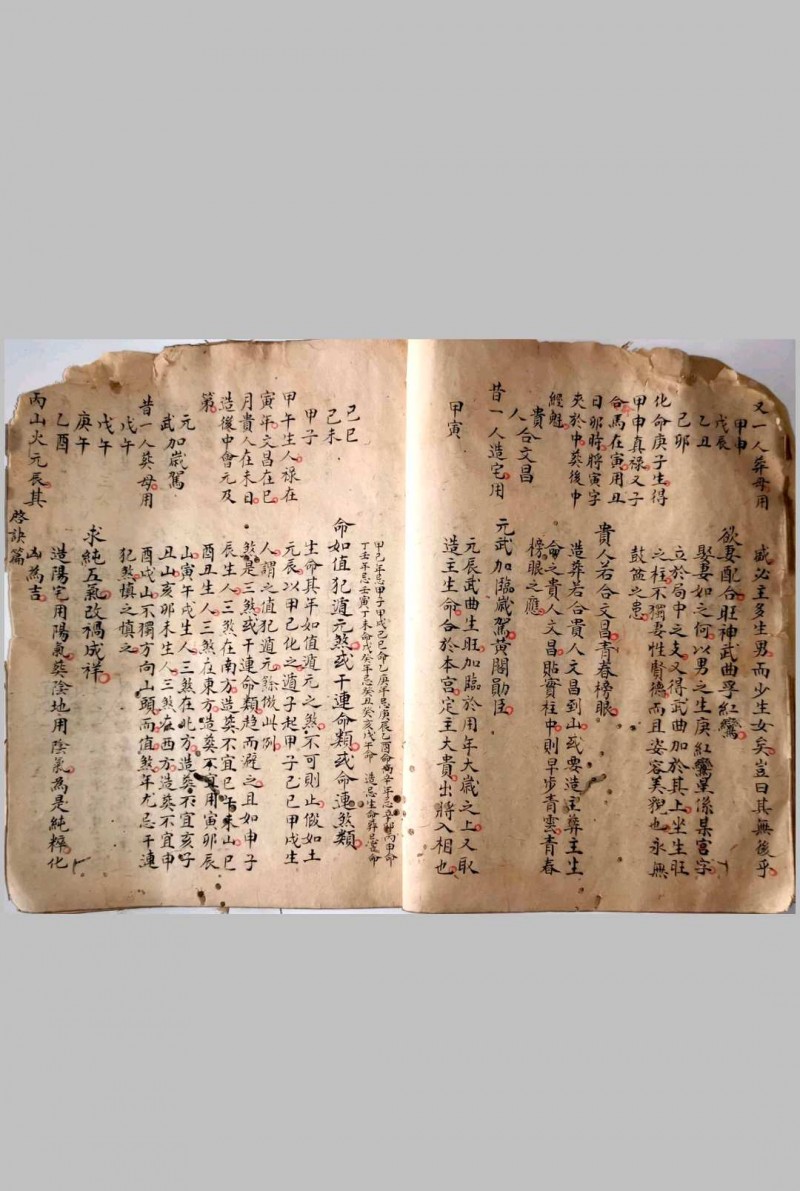 又一人葬母用
甲申
戊辰
乙丑
己卯
化命庚子生得
甲申真禄又子
合馬在寅用丑
日卯時將寅字
夾於中葬後中
經魁
貴
人合文昌
昔一人造宅用
甲寅
盛必主多生男而少生女矣豈曰其無後乎
欲妻配合旺神武曲孚紅鸞
娶妻如之何以男之生庚紅鸞星係某宮字
立於局中之支又得武曲加於其上坐生旺
之柱不獨妻性賢德而且姿容美貌也永無
鼓盆之患
貴人若合文昌青春榜眼
造葬若合貴人文昌到山或要造主葬主生
命之貴人文昌貼實柱中則早步青雲青春
榜眼之應
元武加臨歲駕黃閣勛臣
元辰武曲生旺加臨於用年大歲之上又取
造主生命合於本宮定主大貴出將入相也
己巳
己未
甲子
甲午生人禄在
寅年文昌在巳
月貴人在未日
造後中會元及
第
元
武加歲駕
昔一人葬母用
戊午
戊午
庚午
乙酉
丙山火元辰其
甲己年忌甲子甲戌己巳命乙庚年忌庚辰乙酉命丙辛年忌
丁壬年忌壬寅丁未命戊癸年忌癸丑癸亥戊午命 造忌生命葬忌
命如值犯遁元煞或干連命類或命連煞類
生命其年如值遁元之煞不可則止假如土
元辰以甲己化之遁子起甲子己巳甲戌生
人謂之值犯遁元餘倣此例
煞是三煞或干連命類趋而避之且如申子
辰生人三煞在南方造葬不宜巳午未山巳
酉丑生人三煞在東方造葬不宜用寅卯辰
山寅午戌生人三煞在北方造葬不宜亥子
丑山亥卯未生人三煞在西方造葬不宜申
酉戌山不獨方向山頭而值煞年尤忌干連
犯煞慎之慎之
求純五氣改禍成祥
造陽宅用陽氣葬陰地用陰氣為是純粹化
凶為吉
啓訣篇